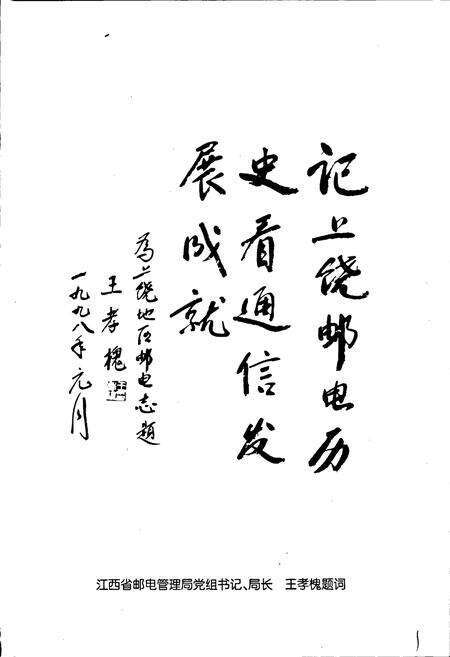 记上饶邮电历
史看通信发
展成就
为上饶地区邮电志题
王孝槐
一九九八年元月
江西省邮电管理局党组书记、局长　王孝槐题词